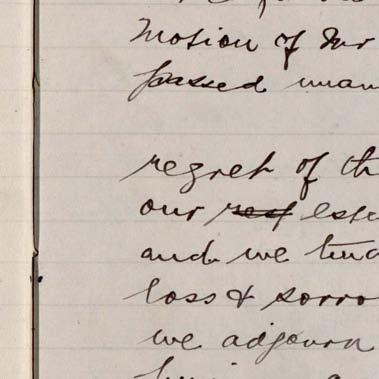 Motion of Mr
passed unan
regret of th
our rest este
and we
loss & sorro
we adjourn